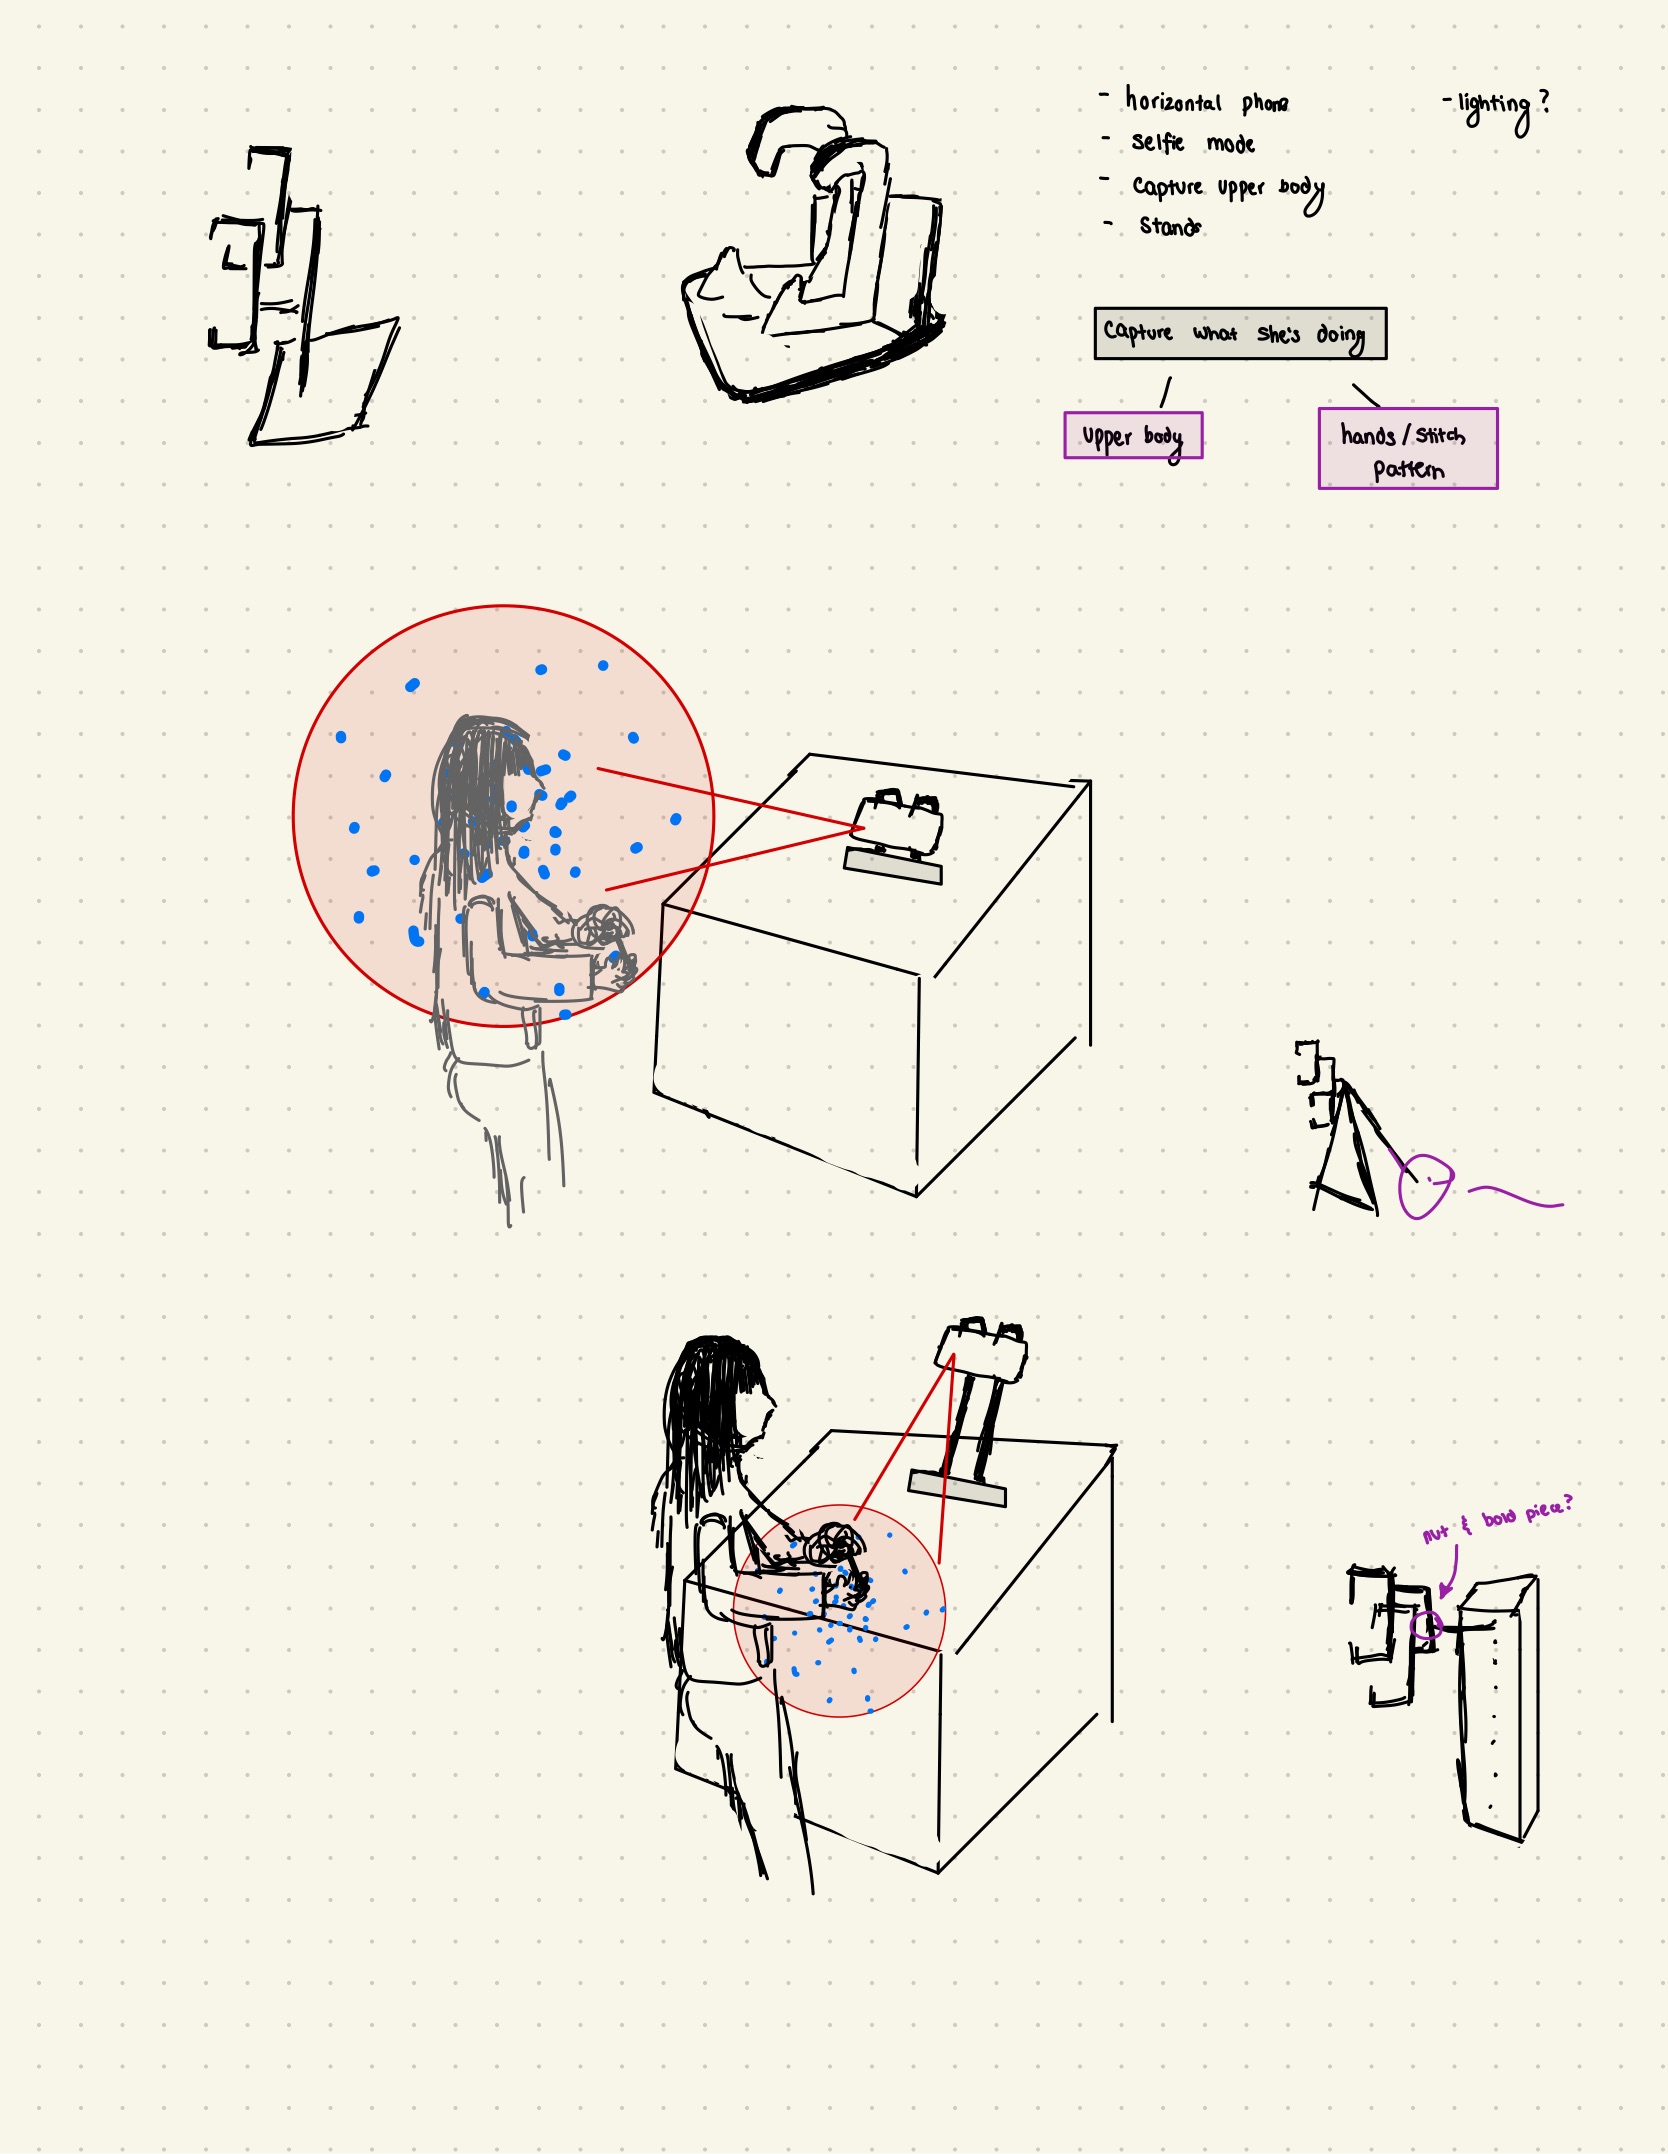 - horizontal phone
- lighting?
- Selfie mode
- Capture upper body
- Stands
Capture what she's doing
Upper body
hands / Stitch
pattern
nut & bold piece?